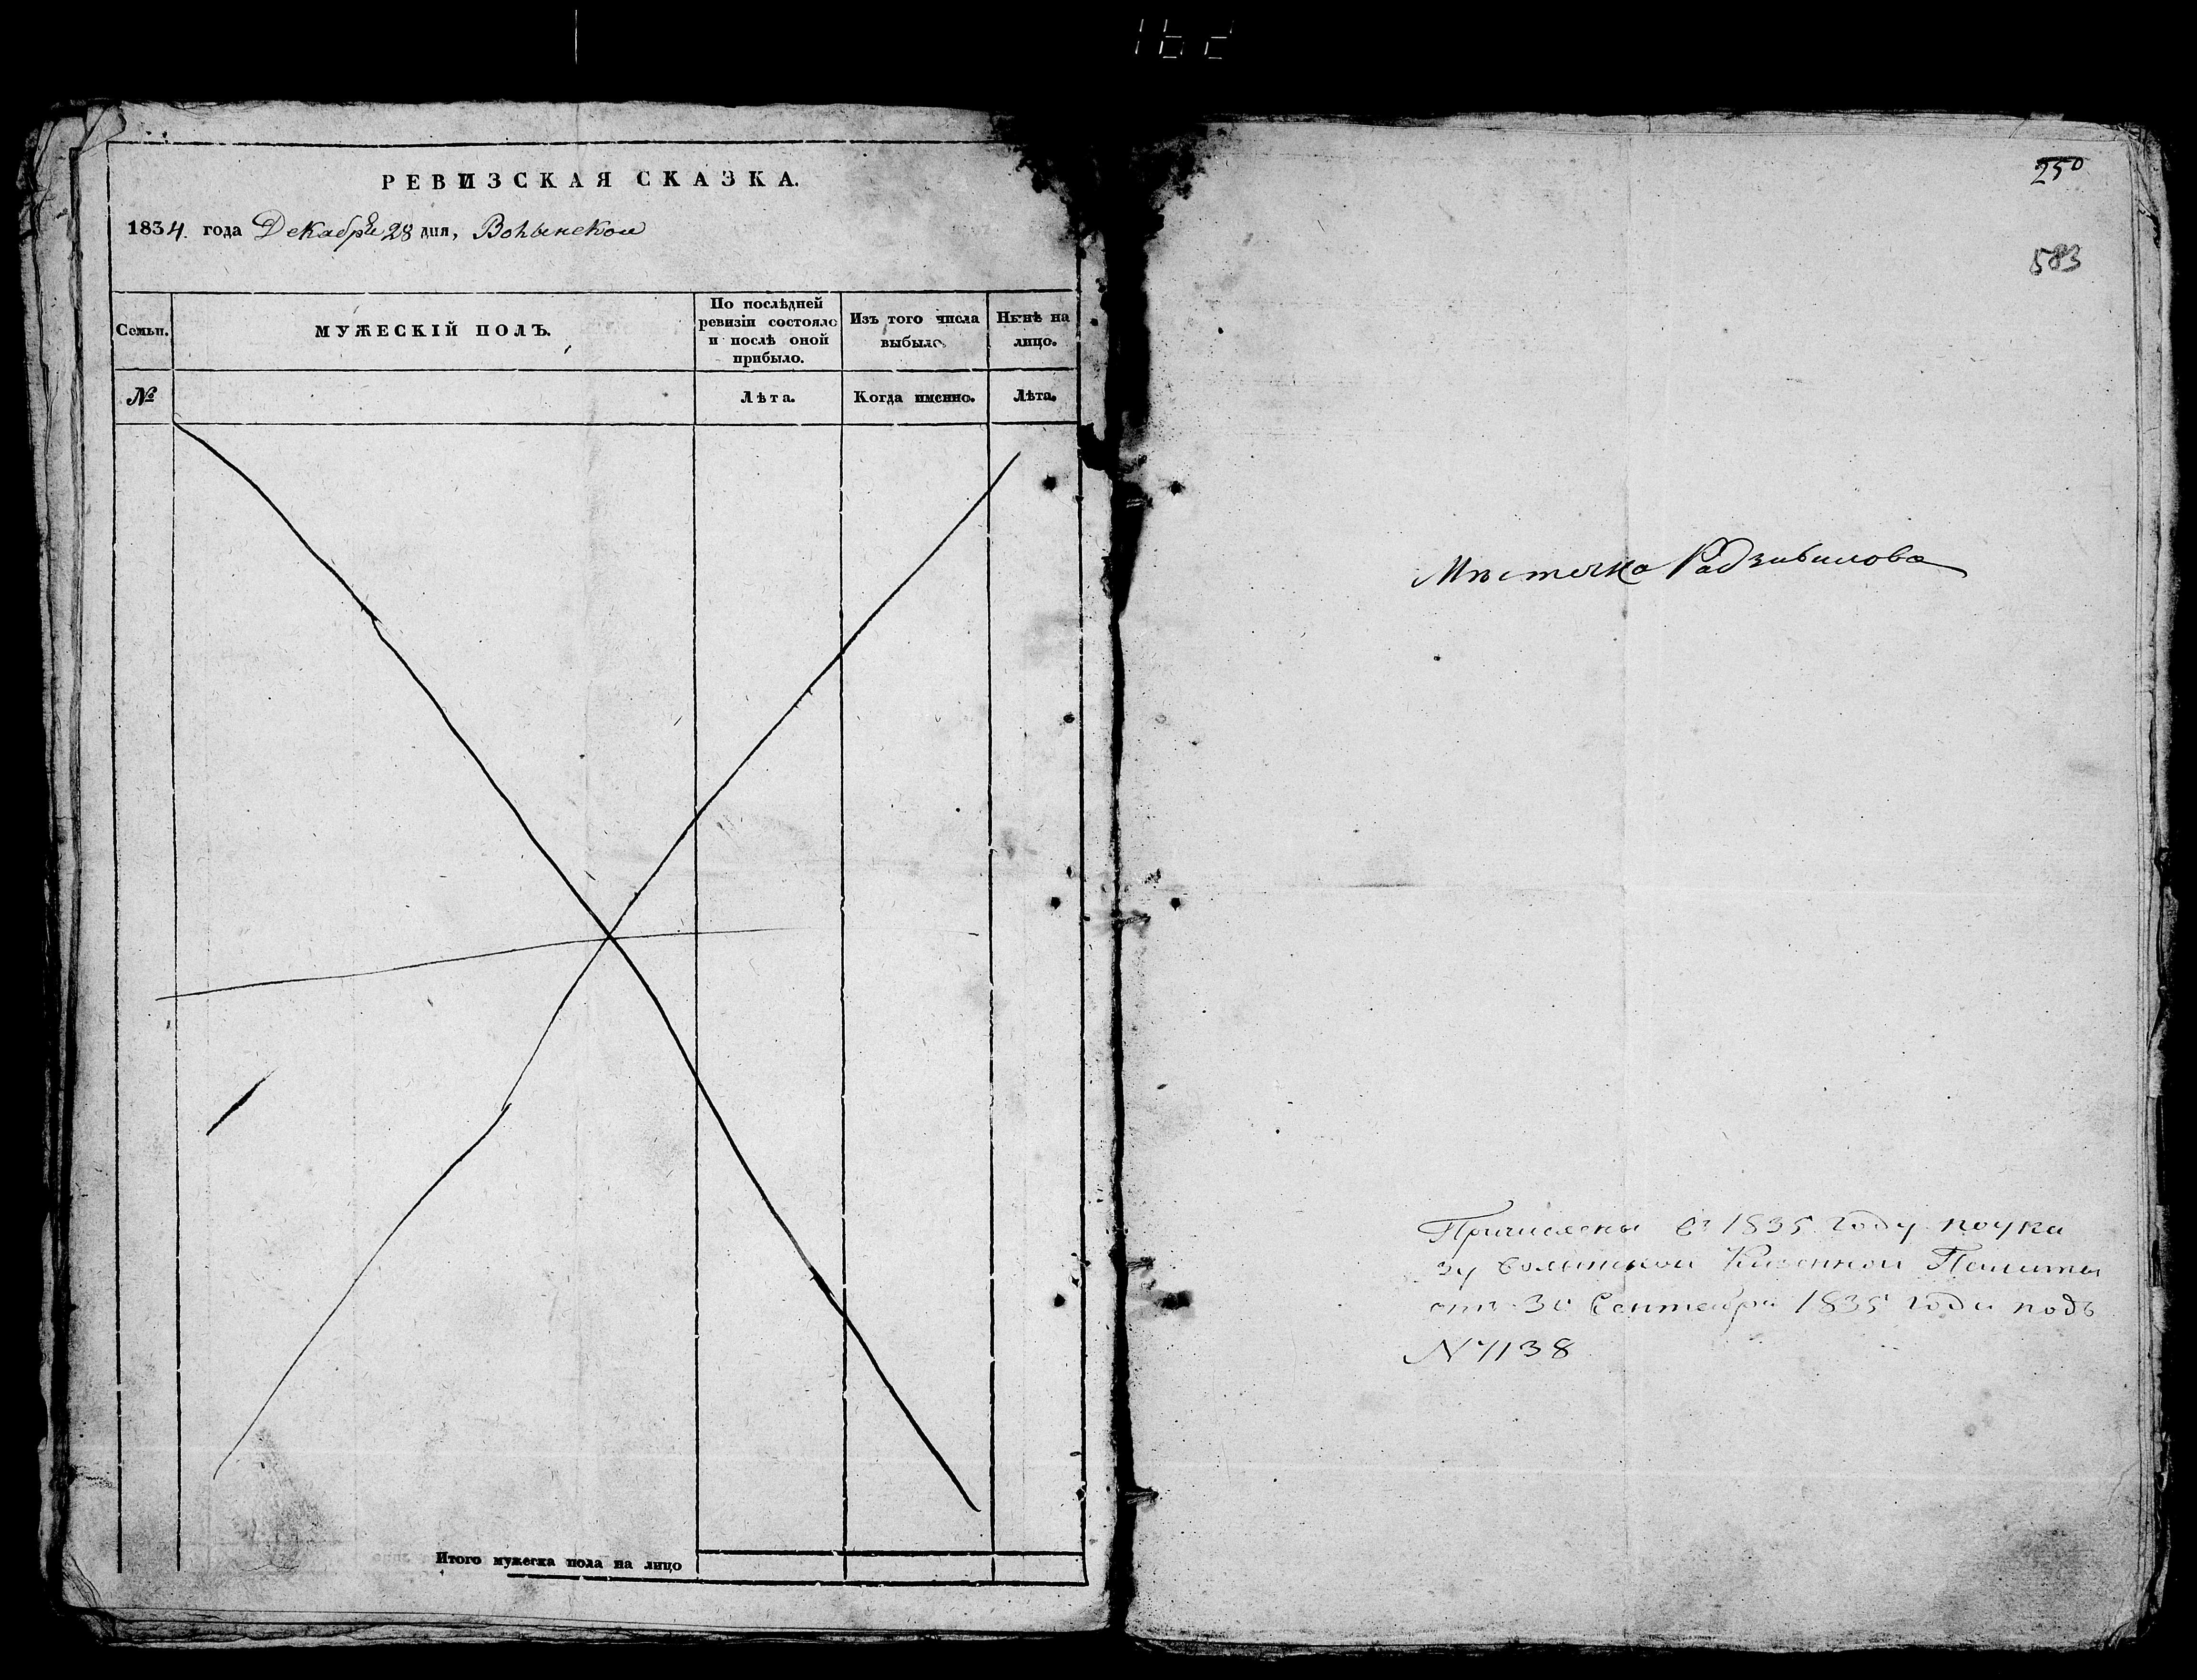 РЕВИЗСКАЯ СКАЗКА.
1834 года Декабря 28 дня, Волынской
Семьи.
МУЖЕСКІЙ ПОЛЪ.
По послѣдней ревизіи состояло и послѣ оной прибыло.
Изъ того числа выбыло.
Нынѣ на лицо.
№
Лѣта.
Когда именно.
Лѣта.
Итого мужеска пола на лицо
250
583
Мѣстечка Радзивилова
Причислены въ 1835 году по ука
зу Волынской Казенной Палаты
отъ 30 Сентября 1835 года подъ
N 7138